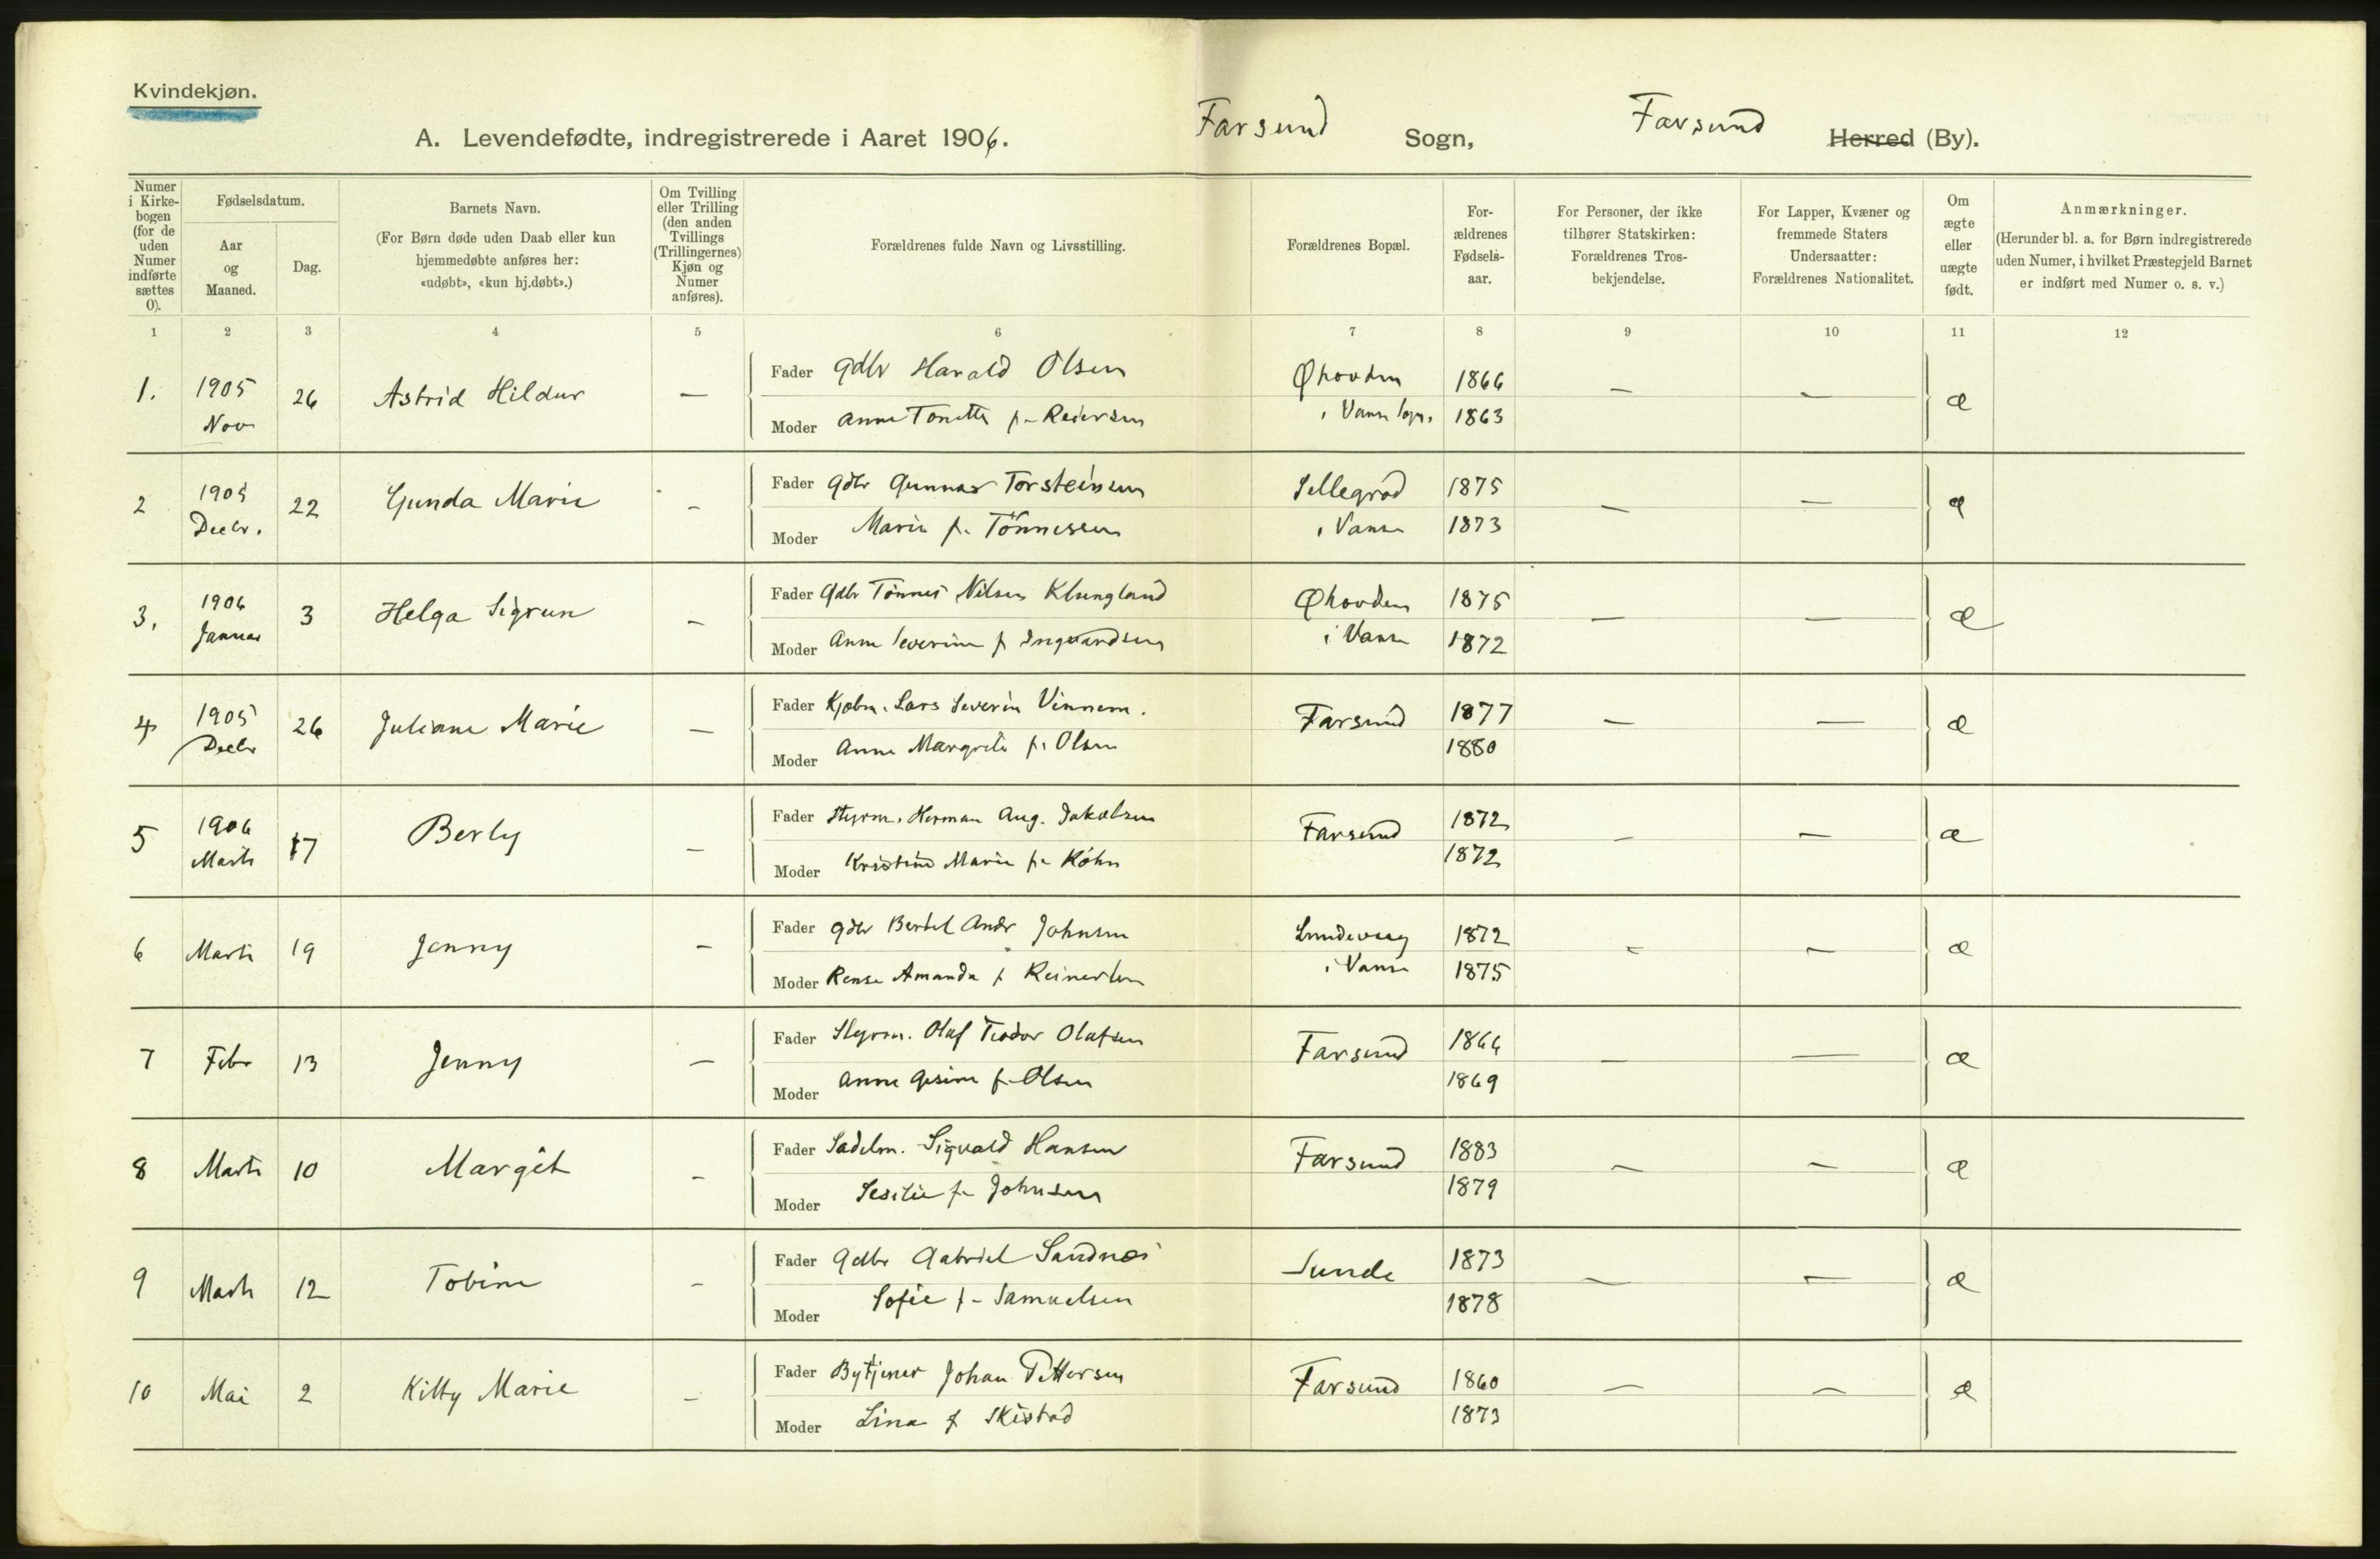 Kvindekjøn.
A. Levendefødte, indregistrerede i Aaret 1906. Farsund Sogn, Farsund Herred (By).
Numer i Kirkebogen (for de uden Numer indførte sættes 0).
Fødselsdatum.
Aar og Maaned.
Dag.
Barnets Navn.
(For Børn døde uden Daab eller kun hjemmedøbte anføres her: «udøbt», «kun hj.døbt».)
Om Tvilling eller Trilling (den anden Tvillings (Trillingernes) Kjøn og Numer anføres).
Forældrenes fulde Navn og Livsstilling.
Forældrenes Bopæl.
Forældrenes Fødselsaar.
For Personer, der ikke tilhører Statskirken: Forældrenes Trosbekjendelse.
For Lapper, Kvæner og fremmede Staters Undersaatter: Forældrenes Nationalitet.
Om ægte eller uægte født.
Anmærkninger.
(Herunder bl. a. for Børn indregistrerede uden Numer, i hvilket Præstegjeld Barnet er indført med Numer o. s. v.)
1 2 3 4 5 6 7 8 9 10 11 12
1. 1905 Nov 26 Astrid Hildur — Fader Gdbr Harald Olsen Øhovden 1866 — — æ
Moder Anne Tonette f. Reiersen i Vanse Sogn. 1863
2 1905 Decbr. 22 Gunda Marie - Fader Gdbr Gunnar Torsteinsen 1875 — — æ
Moder Marie f. Tönnessen i Vanse 1873
3. 1906 Januar 3 Helga Sigrun - Fader Gdbr Tönnes Nilsen Klungland Øhovden 1875 — — æ
Moder Anne Severine f Ingvardsen i Vanse 1872
4 1905 Decbr 26 Juliane Marie — Fader Kjøbm. Lars Severin Vinnem. Farsund 1877 — — æ
Moder Anne Margrete f. Olsen 1880
5 1906 Marts 17 Berly - Fader Styrm. Herman Aug. Jakobsen Farsund 1872 — — æ
Moder Kristine Marie f. Köhn 1872
6 Marts 19 Jenny - Fader Gdbr Bertel Andr Johnsen Lundevaag 1872 - — æ
Moder Rense Amanda f Reinertsen i Vanse 1875
7 Febr 13 Jenny — Fader Styrm. Olaf Teodor Olafsen Farsund 1866 — — æ
Moder Anne Gesine f. Olsen 1869
8 Marts 10 Margit - Fader Sadelm. Sigvald Hansen Farsund 1883 — — æ
Moder Sesilie f. Johnsen 1879
9 Marts 12 Tobine - Fader Gdbr Gabriel Sandnes Lunde 1873 — — æ
Moder Sofie f - Samuelsen 1878
10 Mai 2 Kitty Marie - Fader Bytjener Johan Pettersen Farsund 1860 — — æ
Moder Lina f Skistad 1873